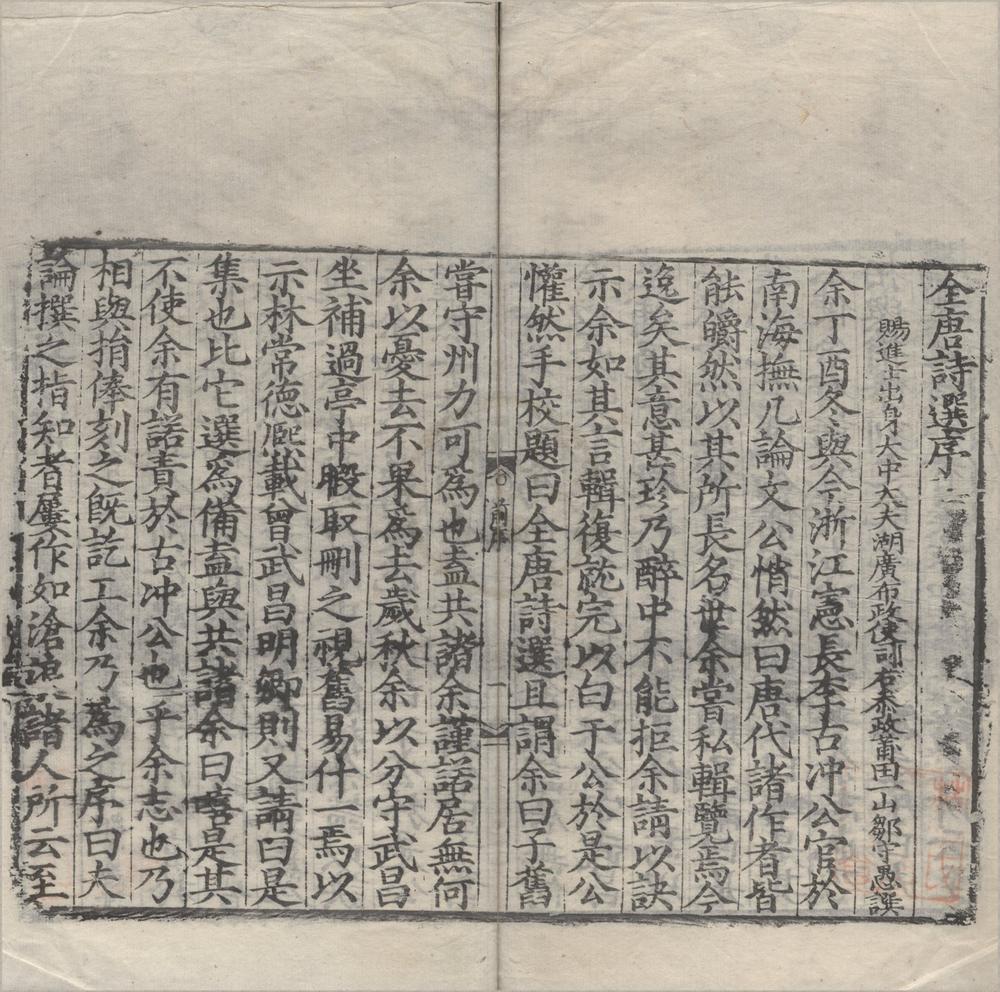 全唐詩選序
賜進士出身大中大夫湖廣布政使司右叅政莆田一山鄒守愚譔
余丁酉冬與今浙江憲長李古冲公官於
南海撫几論文公悄然曰唐代諸作者皆
能皭然以其所長名世余嘗私輯覽焉今
逸矣其意甚珍乃醉中不能拒余請以訣
示余如其言輯復就完以白于公於是公
懽然手校題曰全唐詩選且謂余曰子舊
前序
一
嘗守州力可為也盍共諸余謹諾居無何
余以憂去不果為去歲秋余以分守武昌
坐補過亭中暇取刪之視舊易什一焉以
示林常德熈載曾武昌明卿則又請曰是
集也比它選為備盍與共諸余曰嘻是其
不使余有諾責於古冲公也乎余志也乃
相與捐俸刻之旣訖工余乃為之序曰夫
論撰之指知者屢作如滄浪諸人所云至